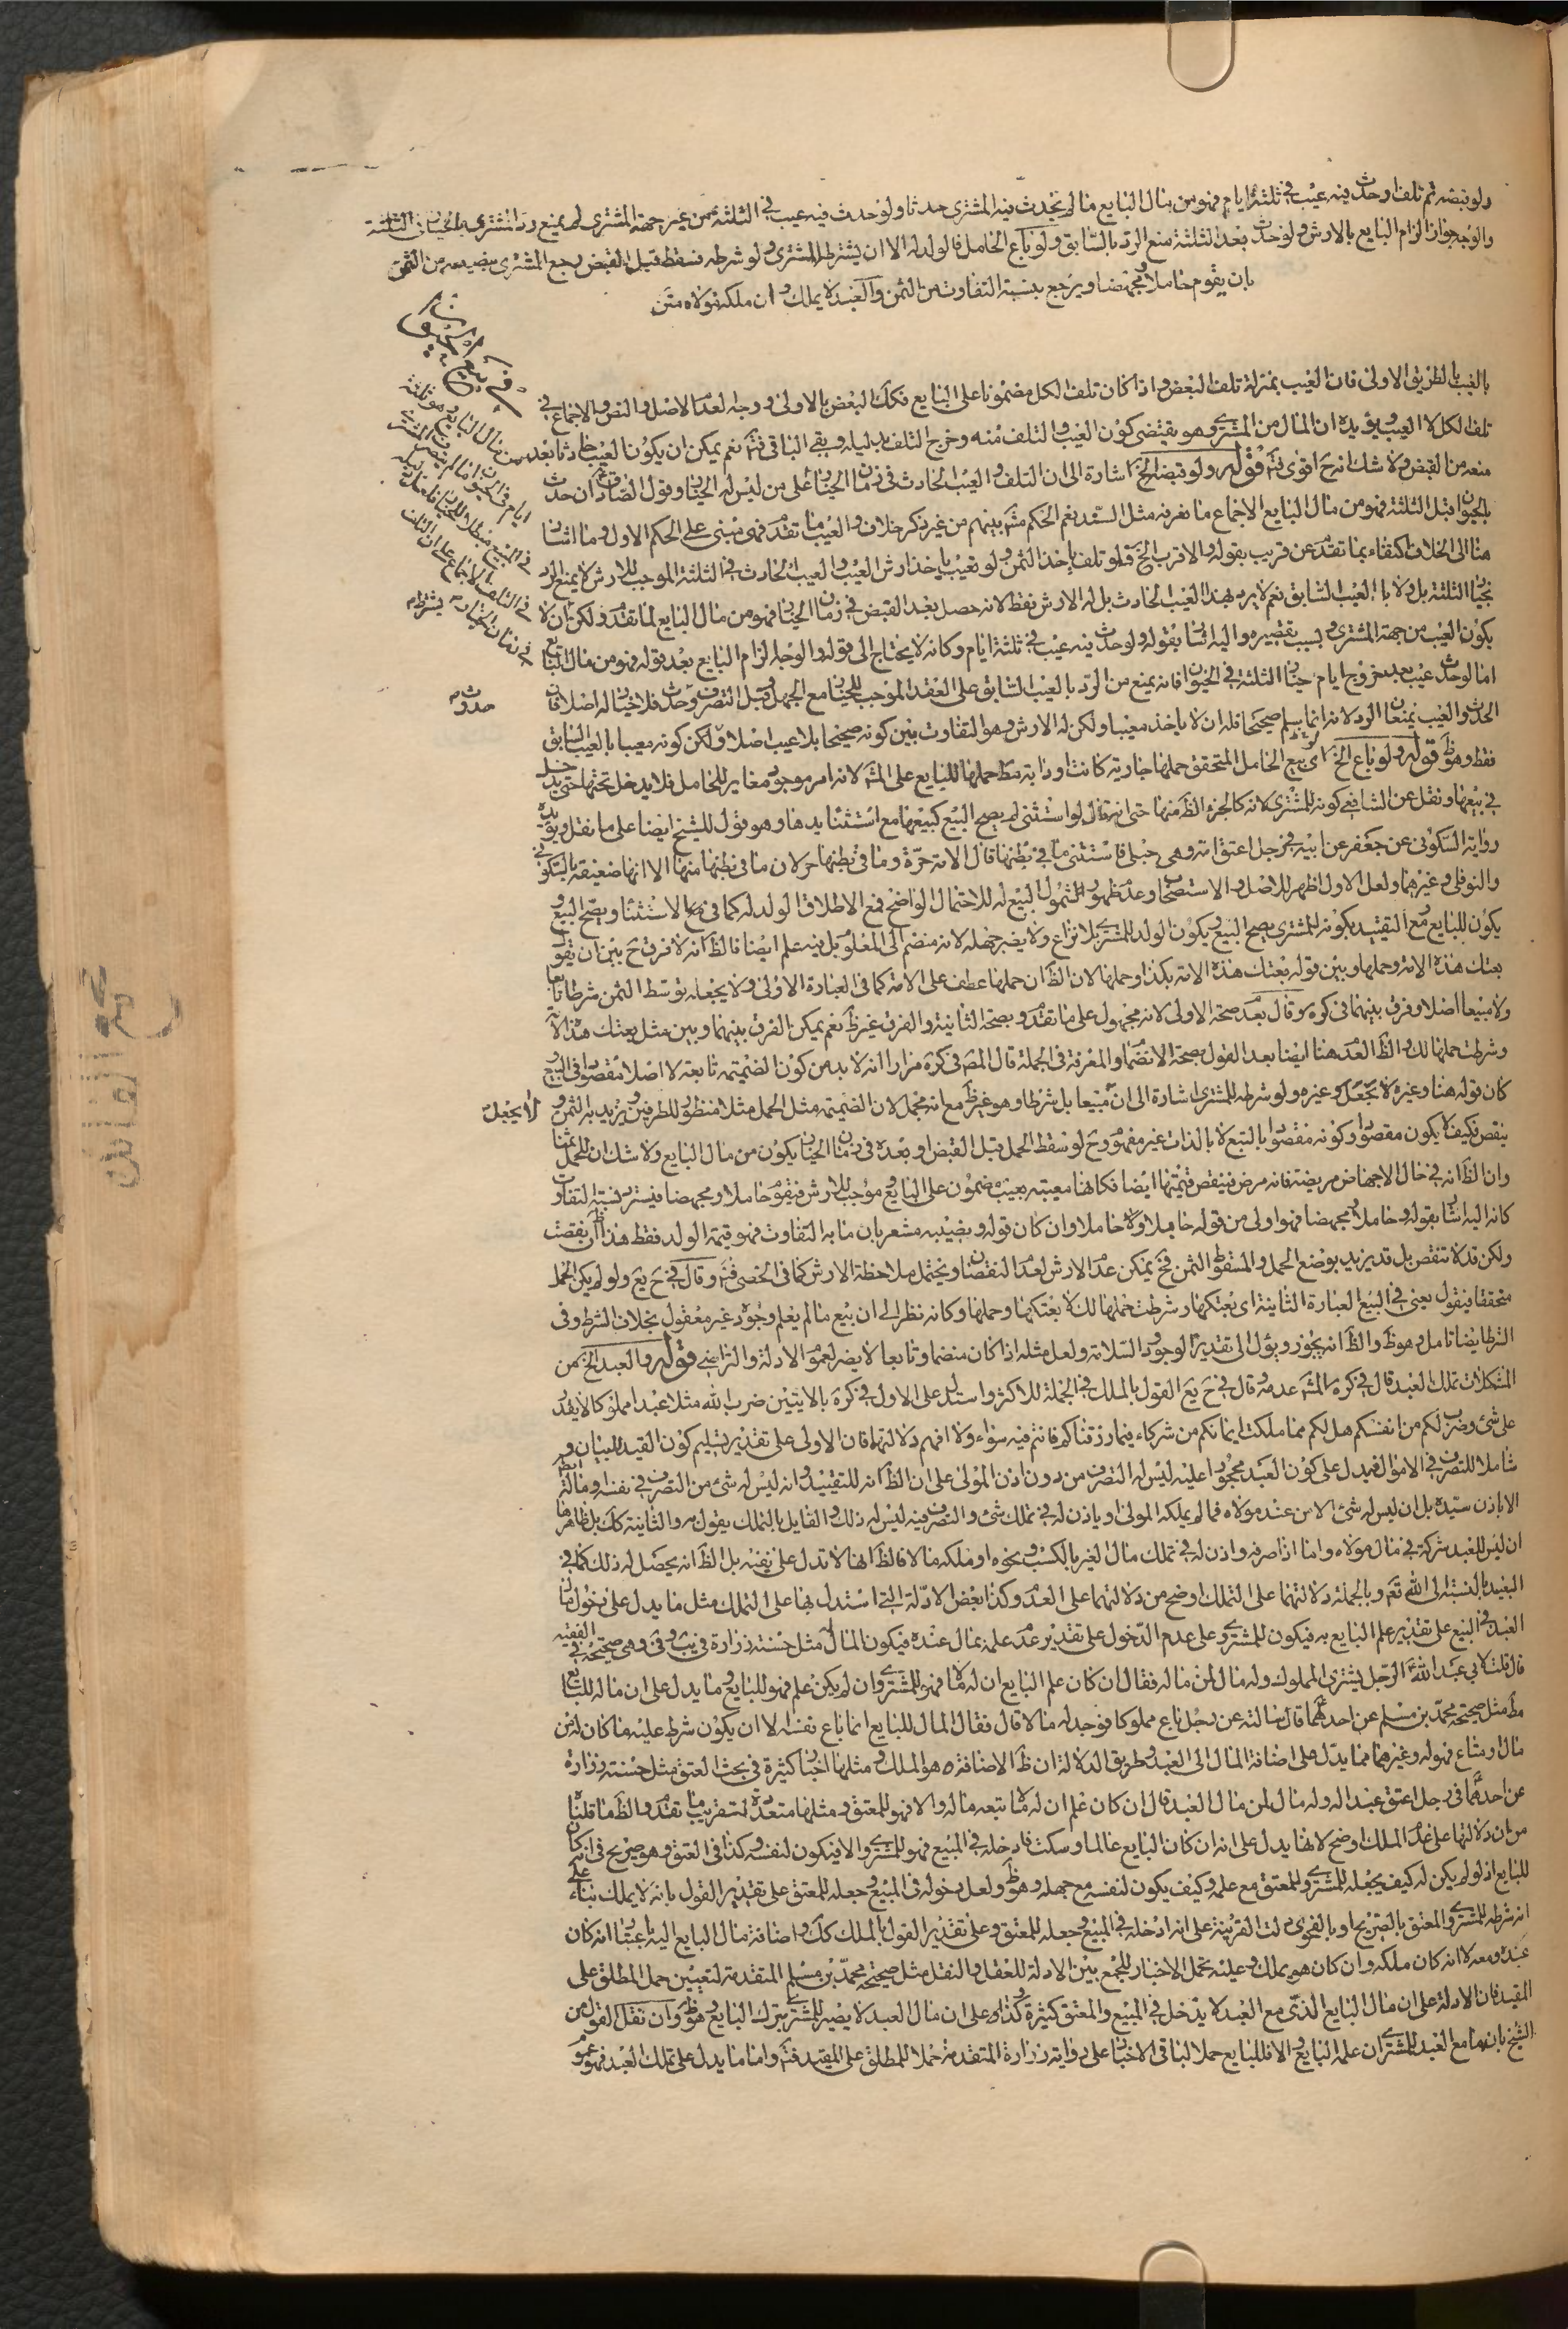 ولو قبضه ثم تلف او حدث فيه عيب في ثلثة ايام فهو من مال البايع ما لم يحدث فيه المشتري حدثا ولو حدث فيه عيب في الثلثة من غير جهة المشتري لم يمنع رد المشتري بالخيار في الثلثة
والوجه جواز الزام البايع بالارش ولو حدث بعد الثلثة منع الرد بالسابق ولو باع الحامل فالولد له الا ان يشترطه المشتري ولو شرطه فسقط قبل القبض رجع المشتري بنصيبه من الثمن
بان يقوم حاملا ومجهضا ويرجع بنسبة التفاوت من الثمن والعبد لا يملك وان ملكه مولاه متن
في بيع الحيوان
بالعيب بالطريق الاولى فان العيب بمنزلة تلف البعض واذا كان تلف الكل مضمونا على البايع فكك البعض بالاولى ووجه العدم الاصل والنص والاجماع في
تلف الكل لا العيب ويؤيده ان المال من المشتري وهو يقتضي كون العيب والتلف منه وخرج التلف بدليله وبقي الباقي فتم نعم يمكن ان يكون العيب حادثا بعد
منعه من القبض ولا شك انه ح اقوى فتم قوله ولو قبضه الخ اشارة الى ان التلف والعيب الحادث في زمان الخيار على من ليس له الخيار وقول المصنف ان حدث
بالحيوان قبل الثلثة فهو من مال البايع الاجماع ما نعرفه مثل السند نعم الحكم مشهور بينهم من غير ذكر خلاف والعيب ما تقدم فهو مبنى على الحكم الاول وما اشار
هنا الى الخلاف اكتفاء بما تقدم عن قريب بقوله والاقرب الخ فلو تلف ياخذ الثمن ولو تعيب ياخذ ارش العيب والعيب الحادث في الثلثة الموجب للارش لا يمنع الرد
بخيار الثلثة بل ولا بالعيب السابق نعم لا يرد بهذا العيب الحادث بل له الارش فقط لانه حصل بعد القبض في زمان الخيار فهو من مال البايع لما تقدم ولكن بان لا
يكون العيب من جهة المشتري وبسبب تقصيره واليه اشار بقوله ولو حدث فيه عيب في ثلثة ايام وكانه لا يحتاج الى قوله والوجه الزام البايع بعد قوله فهو من مال البايع
اما لو حدث عيب بعد خروج ايام خيار الثلثة في الحيوان فانه يمنع من الرد بالعيب السابق على العقد الموجب للخيار مع الجهل وقبل التصرف وحدث فلا خيار له اصلا فان
حدوث
الحدث والعيب يمنعان الرد لانه انما يسلم صحيحا فله ان لا ياخذ معيبا ولكن له الارش وهو التفاوت بين كونه صحيحا بلا عيب اصلا ولكن كونه معيبا بالعيب السابق
فقط وهو ظ قوله ولو باع الخ اى بيع الحامل المتحقق حملها جارية كانت او دابة حملها للبايع على المش لانه امر موجود مغاير للحامل فلا يدخل تحتها حتى يدخل
في بيعها ونقل عن الشافعي كونه للمشتري لانه كالجزء الظ منها حتى انه قال لو استثنى لم يصح البيع كبيعها مع استثناء يدها وهو قول للشيخ ايضا على ما نقل ويؤيده
رواية السكوني عن جعفر عن ابيه في رجل اعتق امة وهي حبلى فاستثنى ما في بطنها قال الامة حرة وما في بطنها حر لان ما في بطنها منها الا انها ضعيفة بالسكوني
والنوفلي وغيرهما ولعل الاول اظهر للاصل والاستصحاب وعدم ظهور الشمول البيع له للاحتمال الواضح فمع الاطلاق الولد له كما في الاستثناء ويصح البيع و
يكون للبايع ومع التقييد بكونه للمشتري يصح البيع ويكون الولد للمشتري بلا نزاع ولا يضر جهله لانه منضم الى المعلوم بل فيه علم ايضا فالظ انه لا فرق ح بين ان يقول
بعتك هذه الامة وحملها وبين قوله بعتك هذه الامة بكذا وحملها لان الظ ان حملها عطف على الامة كما في العبارة الاولى ولا يجعله توسط الثمن شرطا تابعا
ولا مبيعا اصلا وفرق بينهما في كره وقال بعدم صحة الاولى لانه مجهول على ما تقدم وبصحة الثانية والفرق غير ظ نعم يمكن الفرق بينهما وبين مثل بعتك هذه الامة
وشرطت حملها لك والظ العدم هنا ايضا بعد القول بصحة الانضمام والمعرفة في الجملة قال المص في كره مرارا انه لا بد من كون الضميمة تابعة لا اصلا مقصودا في البيع
كان قوله هنا وغيره لا يجعل كغيره ولو شرطه للمشتري اشارة الى ان مبيعا بل شرطا وهو غير ظ مع انه مجمل لان الضميمة مثل الحمل مثلا منظور للطرفين ويزيد به الثمن و
لا يجعل
ينقص فكيف لا يكون مقصودا وكونه مقصودا بالتبع لا بالذات غير مفهوم وح لو سقط الحمل قبل القبض او بعده في زمان الخيار يكون من مال البايع ولا شك ان للحمل ثمنا
وان الظ انه في حال الاجهاض مريضة فانه مرض فينقص قيمتها ايضا فكانها معيبة بعيب مضمون على البايع وموجب للارش فتقوم حاملا ومجهضا فيسترد بنسبة التفاوت
كانه اليه اشار بقوله حاملا ومجهضا فهو اولى من قوله حاملا ولا حاملا وان كان قوله وبنصيبه مشعر بان ما به التفاوت فهو قيمة الولد فقط هذا ان نقصت
ولكن قد لا تنقص بل قد يزيد بوضع الحمل والسقوط الثمن فح يمكن عدم الارش لعدم النقصان ويحتمل ملاحظة الارش كما في الخصي فتم وقال في ح يع ولو لم يكن الحمل
متحققا فيقول يعنى في البيع العبارة الثانية اى بعتكها وشرطت حملها لك لا بعتكها وحملها وكانه نظر الى ان بيع ما لم يعلم وجوده غير معقول بخلاف الشرط وفى
الشرط ايضا تامل وهو ظ والظ انه يجوز ويؤل الى تقدير الوجود والسلامة ولعل مثله اذا كان منضما وتابعا لا يضر لعموم الادلة والتراضي قوله والعبد الخ من
المشكلات تملك العبد قال في كره المش عدمه وقال في ح يع القول بالملك في الجملة للاكثر واستدل على الاول في كره بالايتين ضرب الله مثلا عبدا مملوكا لا يقدر
على شئ وضرب لكم من انفسكم هل لكم مما ملكت ايمانكم من شركاء فيما رزقناكم فانتم فيه سواء ولا افهم دلالتهما فان الاولى على تقدير تسليم كون القيد للبيان و
شاملا للتصرف في الاموال فيدل على كون العبد محجورا عليه ليس له التصرف من دون اذن المولى على ان الظ انه للتقييد وانه ليس له شئ من التصرف في نفسه وماله
الا باذن سيده بل ان ليس له شئ الا من عند مولاه فما لم يملكه المولى او ياذن له في تملك شئ والتصرف فيه ليس له ذلك والقايل بالتملك يقول به والثانية كك بل ظاهرها
ان ليس للعبد شركة في مال مولاه واما اذا صرفه واذن له في تملك مال الغير بالكسب ونحوه او ملكه مالا فالظ انها لا تدل على نفيه بل الظ انه يحصل له ذلك كما في
العبيد بالنسبة الى الله تع وبالجملة دلالتهما على التملك اوضح من دلالتهما على العدم وكذا بعض الادلة التي استدل بها على التملك مثل ما يدل على دخول مال
العبد في البيع على تقدير علم البايع به فيكون للمشتري وعلى عدم الدخول على تقدير عدم علمه بمال عنده فيكون المال له مثل حسنة زرارة في يب وفي وهي صحيحة في الفقيه
قال قلت لابي عبد الله الرجل يشترى المملوك وله مال لمن ماله فقال ان كان علم البايع ان له مالا فهو للمشتري وان لم يكن علم فهو للبايع وما يدل على ان ماله للبايع
مط مثل صحيحة محمد بن مسلم عن احدهما قال سالته عن رجل باع مملوكا فوجد له مالا قال فقال المال للبايع انما باع نفسه الا ان يكون شرط عليه ما كان له من
مال او متاع فهو له وغيرهما مما يدل على اضافة المال الى العبد وطريق الدلالة ان ظ الاضافة هو الملك ومثلها اخبار كثيرة في بحث العتق مثل حسنة زرارة
عن احدهما في رجل اعتق عبدا له وله مال لمن مال العبد قال ان كان علم ان له مالا تبعه ماله والا فهو للمعتق ومثلها متعددة لتقريب ما تقدم والظ ما قلناه
من ان دلالتها على عدم الملك اوضح لانها يدل على انه ان كان البايع عالما وسكت فادخله في المبيع فهو للمشتري والا فيكون لنفسه وكذا في العتق وهو صريح في انه كان
للبايع اذ لو لم يكن له كيف يجعله للمشتري وللمعتق مع علمه وكيف يكون لنفسه مع جهله وهو ظ ولعل دخوله في المبيع وجعله للمعتق على تقدير القول بانه لا يملك بناء على
انه شرطه للمشتري والمعتق بالصريح او بالفحوى دلت القرينة على انه ادخله في المبيع وجعله للمعتق وعلى تقدير القول بالملك كك واضافة مال البايع اليه باعتبار انه كان
عنده ومعه لا انه كان ملكه وان كان هو يملك وعليه تحمل الاخبار للجمع بين الادلة للعقل والنقل مثل صحيحة محمد بن مسلم المتقدمة لتعيين حمل المطلق على
المقيد فان الادلة على ان مال البايع الذى مع العبد لا يدخل في المبيع والمعتق كثيرة وكذا على ان مال العبد لا يصير للمشتري بترك البايع وهو ظ وان نقل القول من
الشيخ بان ما مع العبد للمشتري ان علمه البايع والا فللبايع حملا لباقي الاخبار على رواية زرارة المتقدمة حملا للمطلق على المقيد فتم واما ما يدل على تملك العبد فهو عموم